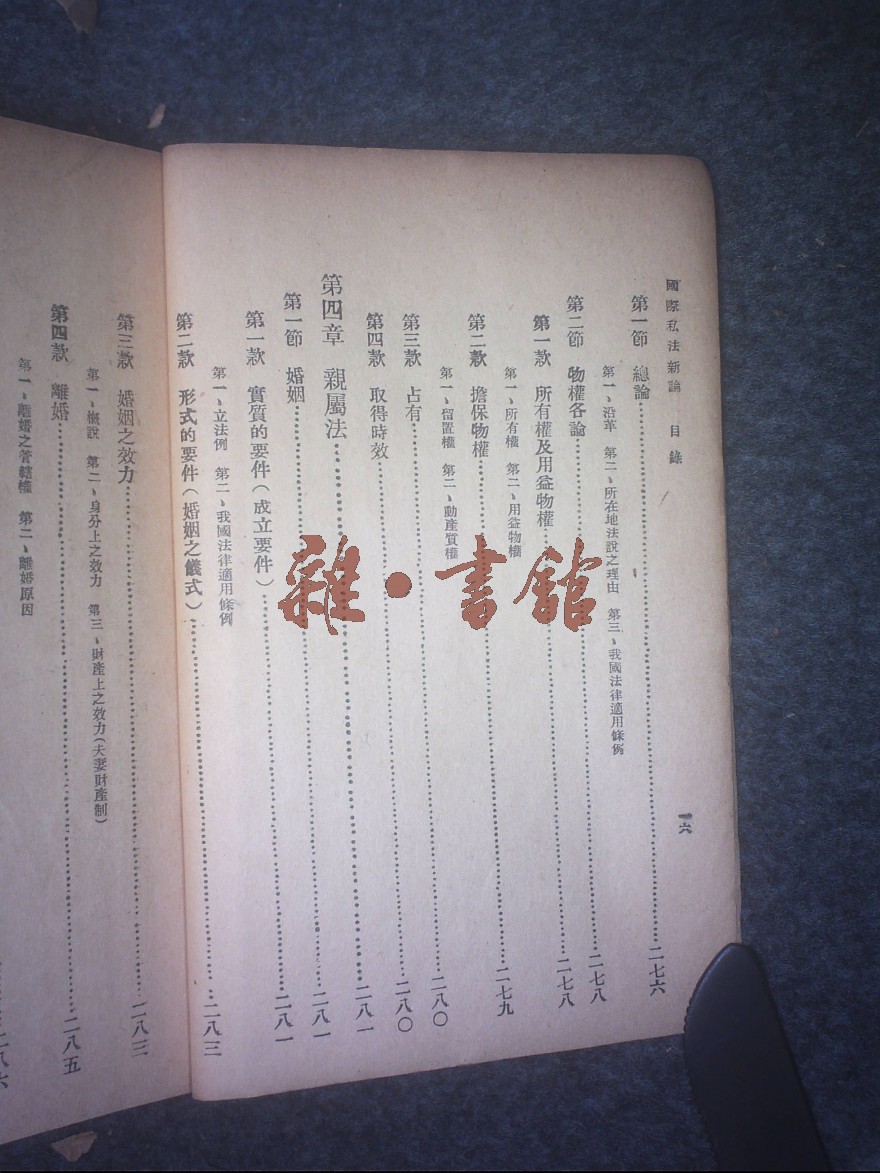 國際私法新論　目錄　一六
第一節　總論……二七六
第一、沿革　第二、所在地法說之理由　第三、我國法律適用條例
第二節　物權各論……二七八
第一款　所有權及用益物權……二七八
第一、所有權　第二、用益物權
第二款　擔保物權……二七九
第一、留置權　第二、動產質權
第三款　占有……二八〇
第四款　取得時效……二八〇
第四章　親屬法……二八一
第一節　婚姻……二八一
第一款　實質的要件（成立要件）……二八一
第一、立法例　第二、我國法律適用條例
第二款　形式的要件（婚姻之儀式）……二八三
第三款　婚姻之效力……二八三
第一、概說　第二、身分上之效力　第三、財產上之效力（夫妻財產制）
第四款　離婚……二八五
第一、離婚之管轄權　第二、離婚原因
雜·書館